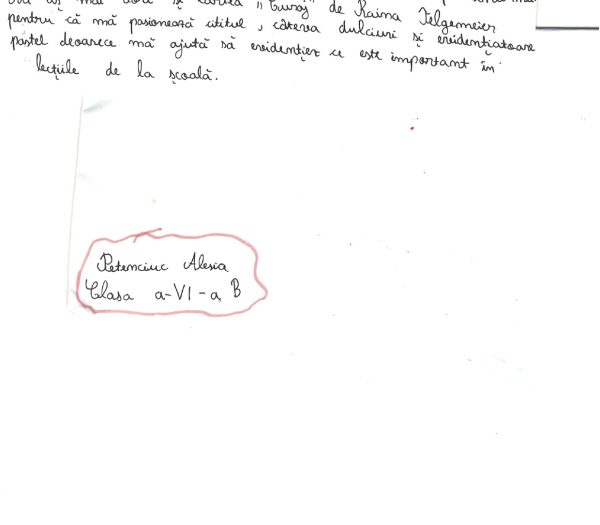 și cartea „Curaj" de Raina Telgemeier
pentru că mă pasionează cititul, câteva dulciuri și evidențiatoare
pastel deoarece mă ajută să evidențiez ce este important în
lecțiile de la școală.
Petenciuc Alesia
Clasa a-VI-a B